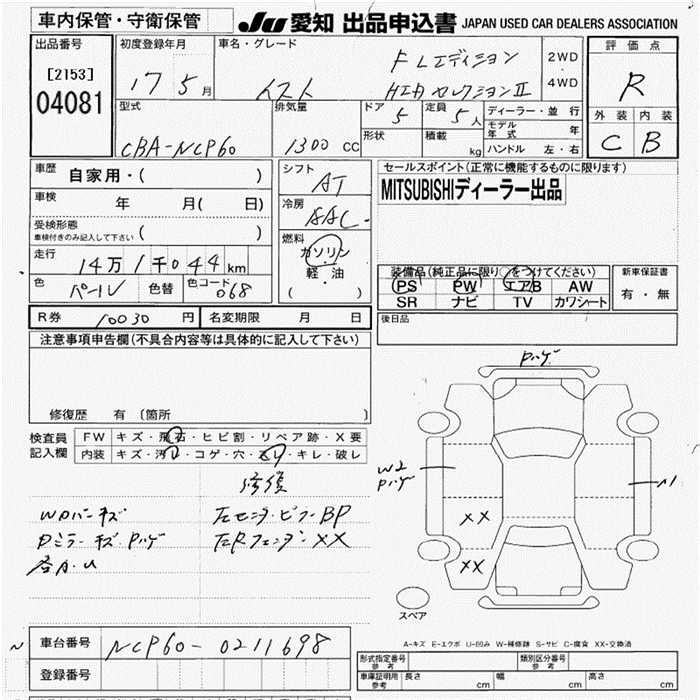 車内保管・守衛保管
JU 愛知 出品申込書 JAPAN USED CAR DEALERS ASSOCIATION
出品番号 初度登録年月 車名・グレード 評価点
[2153] 17 5月 イスト F Lエディション 2WD・4WD R
04081 HIDセレクションII
型式 排気量 ドア 5 定員 5人 ディーラー・並行 外装 内装
CBA-NCP60 1300 CC 形状 積載 kg モデル年式 C B
ハンドル 左・右
車歴 自家用・( ) シフト AT セールスポイント(正常に機能するものに限ります)
MITSUBISHIディーラー出品
車検 年 月( 日) 冷房 AAC
受検形態 ( )
車検付きのみ記入して下さい
燃料 ガソリン
軽・油
( )
走行 14万1千044km
装備品(純正品に限り○をつけてください) 新車保証書
色 パール 色替 色コード 068
PS PW エアB AW 有・無
SR ナビ TV カワシート
R券 10030円 名変期限 月 日 後日品
注意事項申告欄(不具合内容等は具体的に記入して下さい)
修復歴 有 (箇所 )
検査員記入欄 FW キズ・飛石・ヒビ割・リペア跡・X要
内装 キズ・汚レ・コゲ・穴・スレ・キレ・破レ
修復
WDバーキズ 左センターピラーBP
Dミラーキズ・Pハゲ 左Rフェンダー XX
各A・U
Pハゲ
W2
Pハゲ
A1
XX
XX
スペア
A-キズ E-エクボ U-凹み W-補修跡 S-サビ C-腐食 XX-交換済
車台番号 NCP60-0211698
登録番号
形式指定番号 参考 類別区分番号 参考
車庫証明用 参考 長さ cm 幅 cm 高さ cm